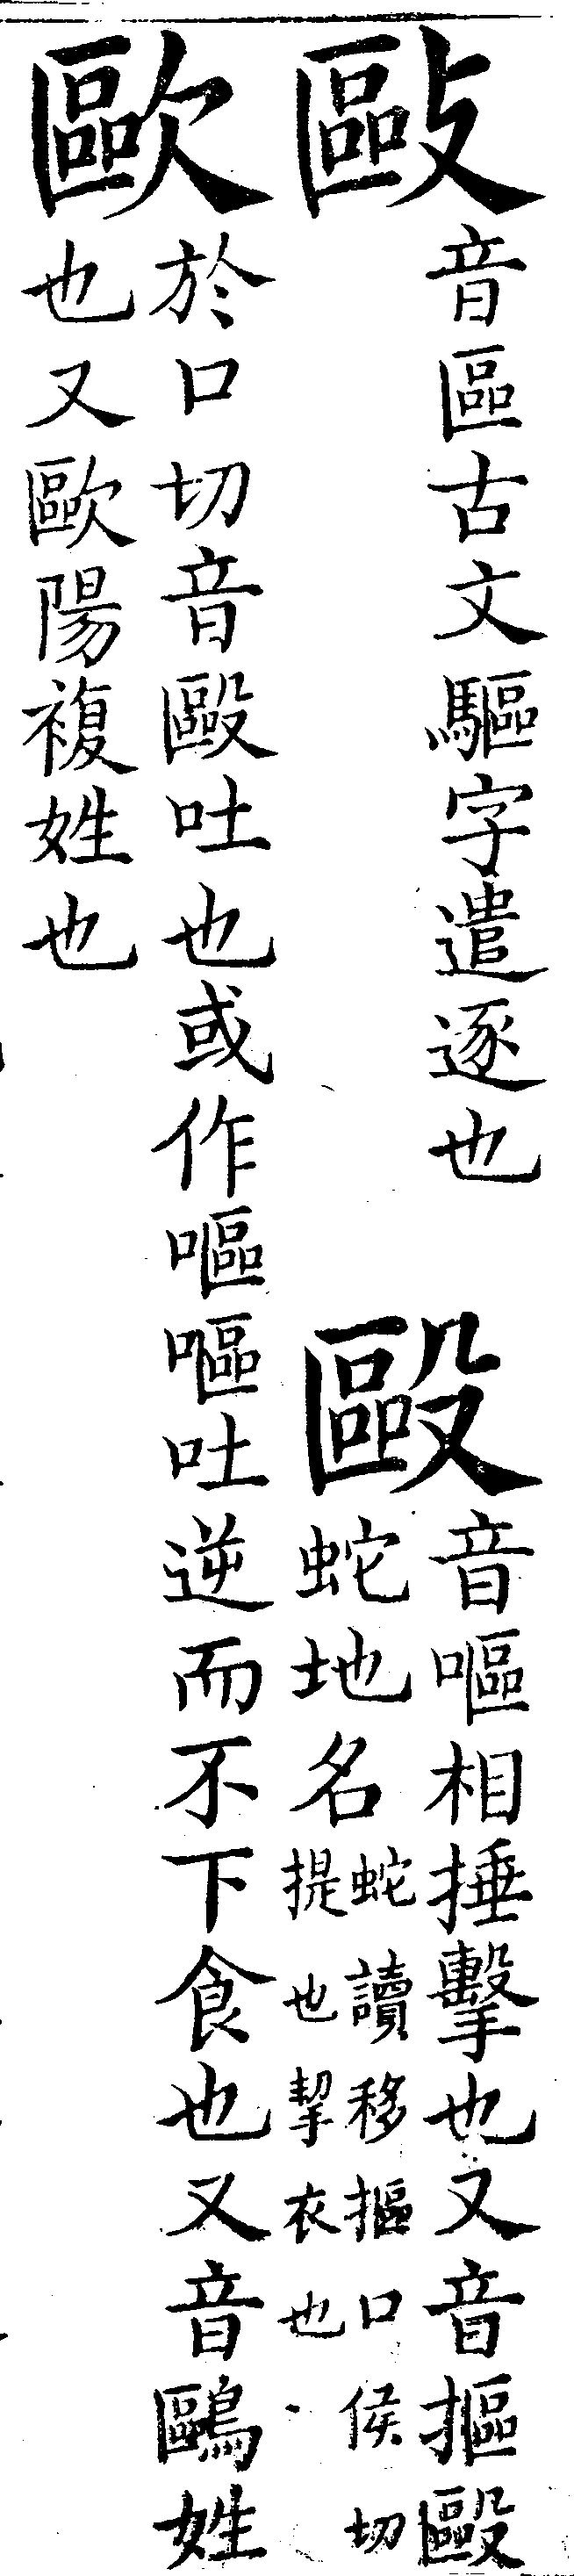 敺
音區古文驅字遣逐也
毆
音嘔相捶擊也又音摳毆
蛇地名
蛇讀移摳口侯切
提也挈衣也
歐
於口切音毆吐也或作嘔嘔吐逆而不下食也又音鷗姓
也又歐陽複姓也